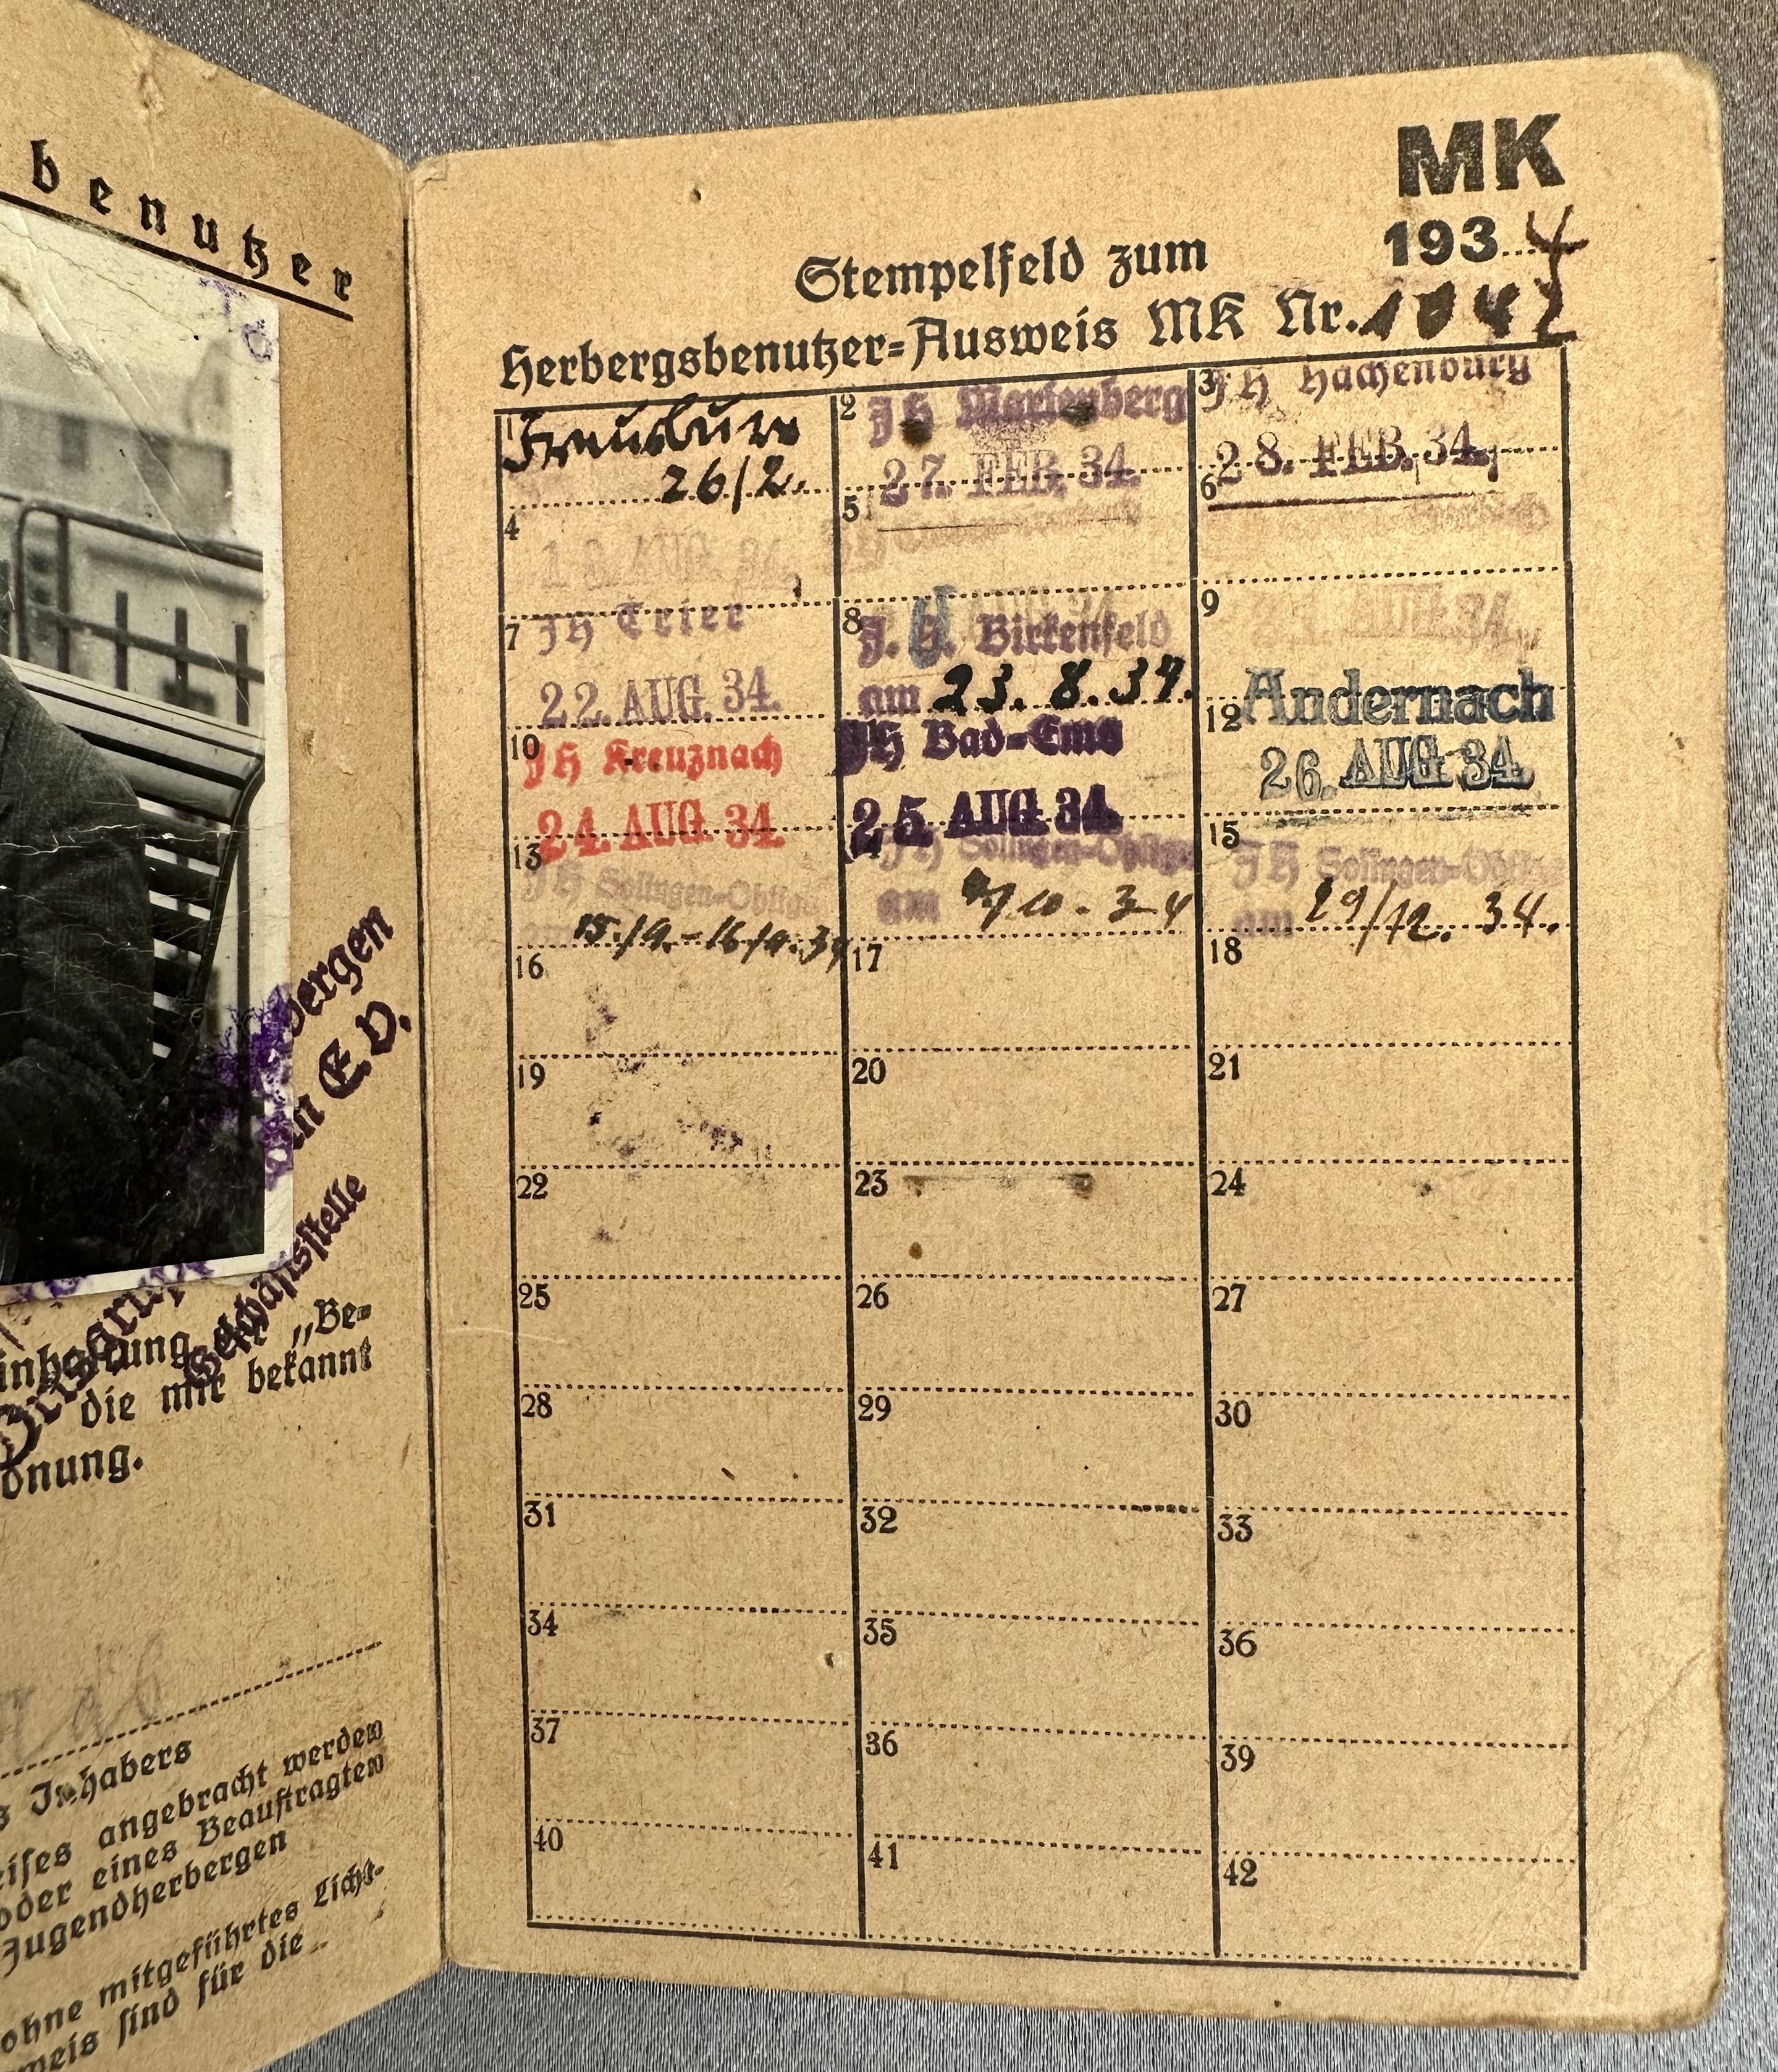 benutzer
bergen
in E.V.
Geschäftsstelle
„Be-
die mir bekannt
dnung.
s Inhabers
eises angebracht werden
oder eines Beauftragten
Jugendherbergen
ohne mitgeführtes Licht-
weis sind für die
MK
1934
Stempelfeld zum
Herbergsbenutzer=Ausweis MK Nr.
1 Freusburg
26/2.
2 JH Marienberg
27. FEB. 34.
3 JH Hachenburg
28. FEB. 34.
4
AUG. 34.
5
JH
6
7 JH Trier
22. AUG. 34.
8 J. H. Birkenfeld
am 23. 8. 34.
9
AUG 34.
10 JH Kreuznach
24. AUG. 34.
JH Bad-Ems
25. AUG 34.
12 Andernach
26. AUG 34.
13 JH Solingen-Obligs
15./9.-16/9.34
JH Solingen-Obligs
am 10. 34
15 JH Solingen-Obligs
am 29/12. 34.
16
17
18
19
20
21
22
23
24
25
26
27
28
29
30
31
32
33
34
35
36
37
36
39
40
41
42